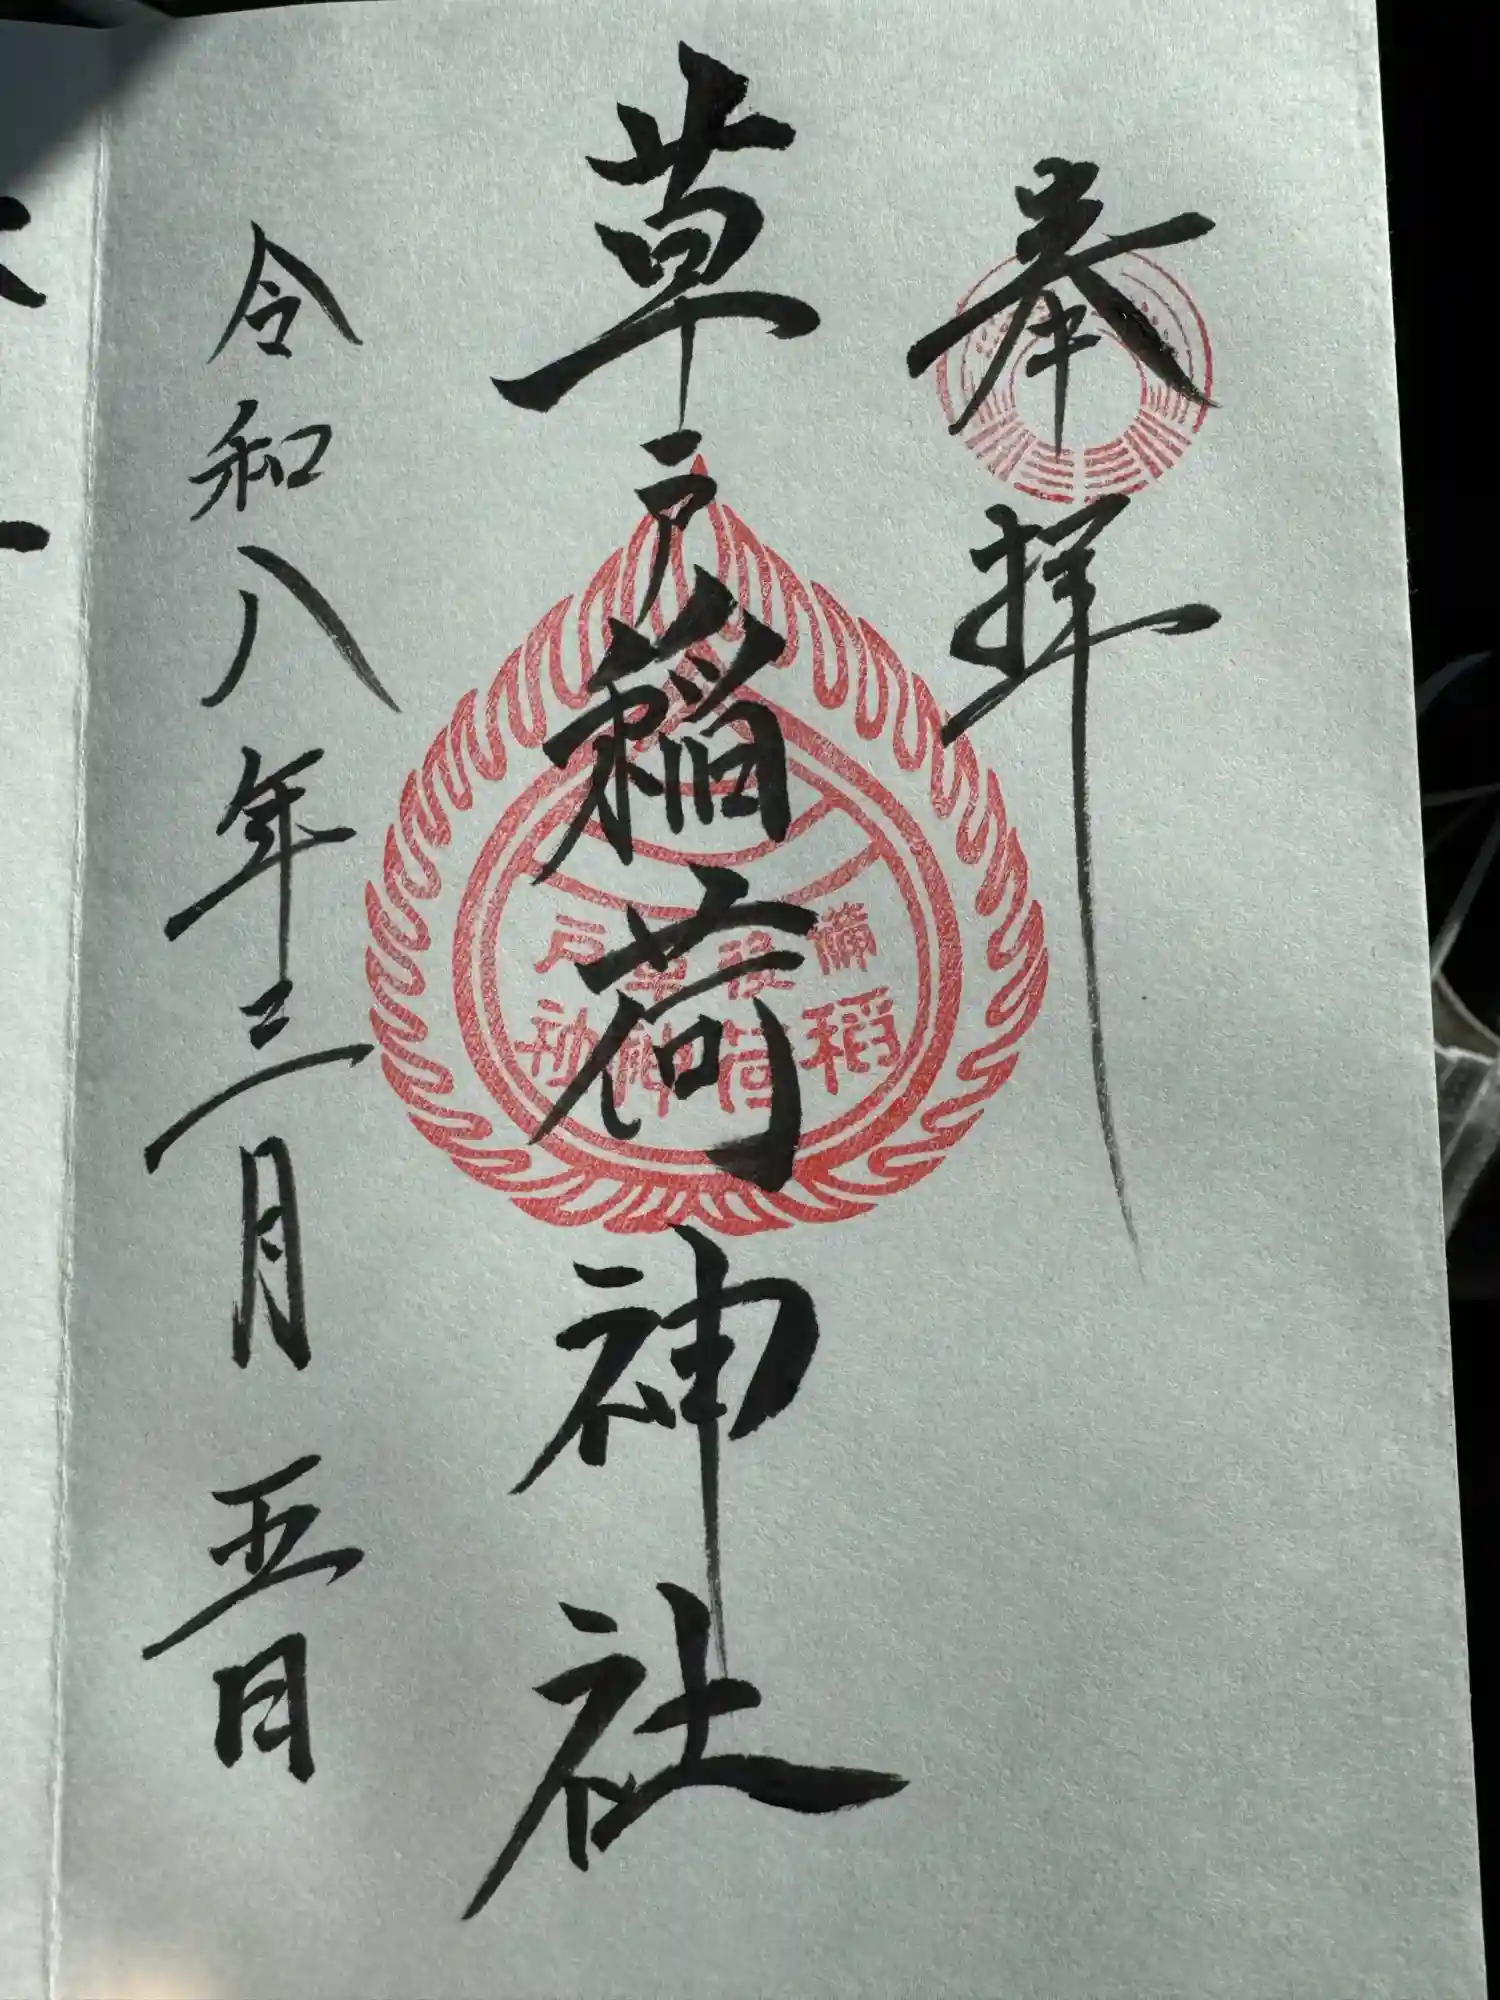 奉拝
草戸稲荷神社
備後草戸
稲荷神社
令和八年三月五日